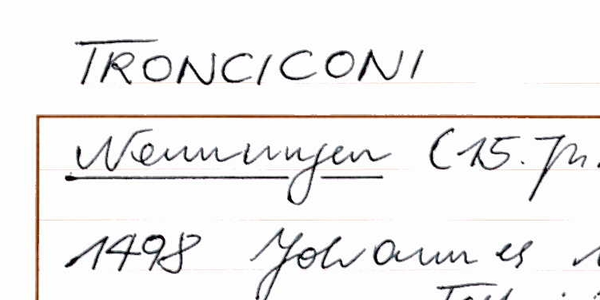 TRONCICONI
Nenningen (15. Jh.
1498 Johannes